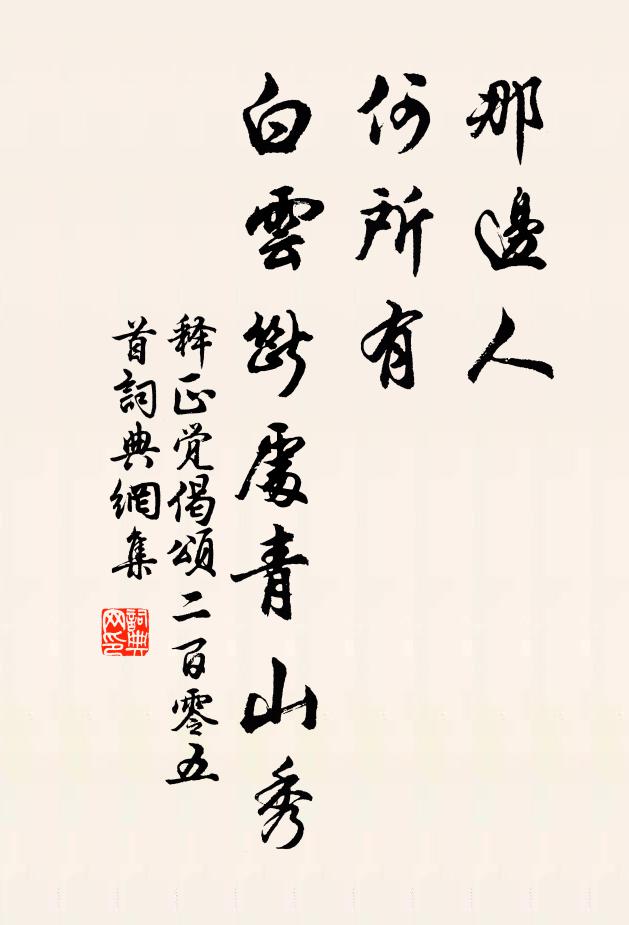 那邊人
何所有
白雲斷處青山秀
释正觉偈頌二百零五
首詞典網集
詞典网印